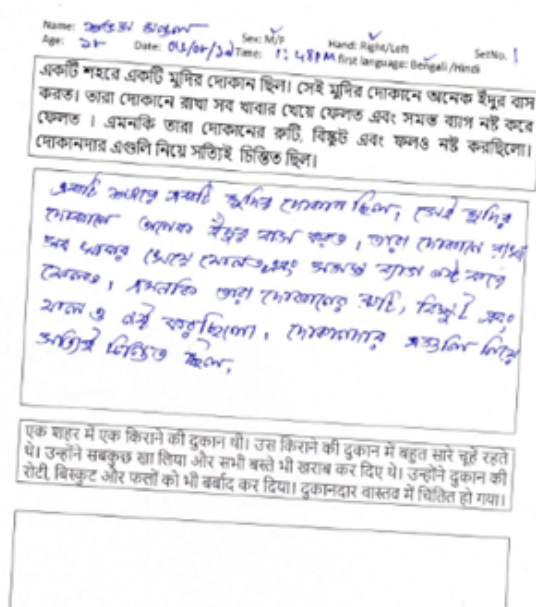 Name: মন্ডল Sex: M/F Hand: Right/Left SetNo. 1
Age: ১৮ Date: Time: 1:48PM first language: Bengali /Hindi
একটি শহরে একটি মুদির দোকান ছিল। সেই মুদির দোকানে অনেক ইঁদুর বাস
করত। তারা দোকানে রাখা সব খাবার খেয়ে ফেলত এবং সমস্ত ব্যাগ নষ্ট করে
ফেলত । এমনকি তারা দোকানের রুটি, বিস্কুট এবং ফলও নষ্ট করছিলো।
দোকানদার এগুলি নিয়ে সত্যিই চিন্তিত ছিল।
একটি শহরে একটি মুদির দোকান ছিল, সেই মুদির
দোকানে অনেক ইঁদুর বাস করত, তারা দোকানে রাখা
সব খাবার খেয়ে ফেলত এবং সমস্ত ব্যাগ নষ্ট করে
ফেলত, এমনকি তারা দোকানের রুটি, বিস্কুট এবং
ফল ও নষ্ট করছিলো, দোকানদার এগুলি নিয়ে
সত্যিই চিন্তিত ছিল,
एक शहर में एक किराने की दुकान थी। उस किराने की दुकान में बहुत सारे चूहे रहते
थे। उन्होंने सबकुछ खा लिया और सभी बस्ते भी खराब कर दिए थे। उन्होंने दुकान की
रोटी, बिस्कुट और फलों को भी बर्बाद कर दिया। दुकानदार वास्तव में चिंतित हो गया।